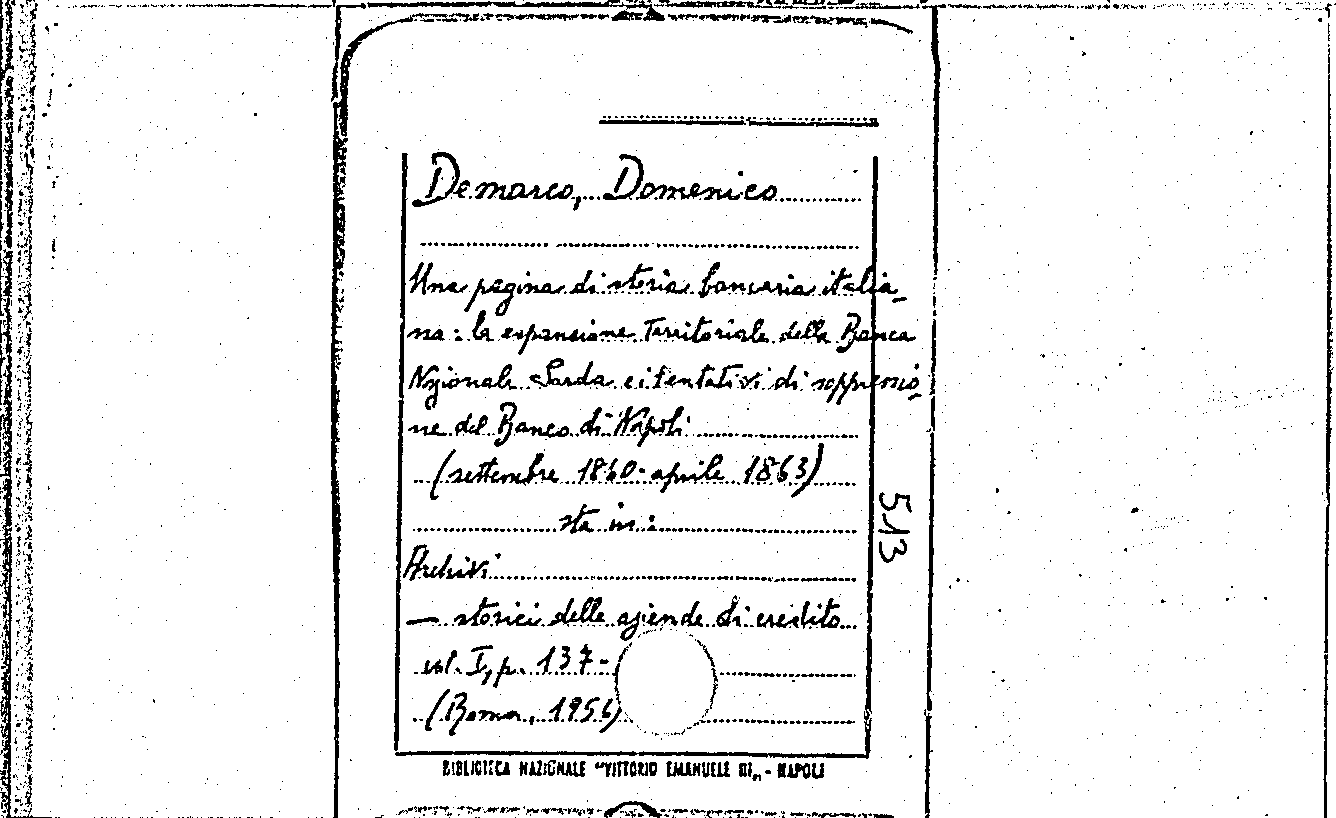 Demarco, Domenico
Una pagina di storia bancaria italia-
na: la espansione territoriale della Banca
Nazionale Sarda e i tentativi di soppressio-
ne del Banco di Napoli
(settembre 1860-aprile 1863)
sta in:
Archivi
— storici delle aziende di credito
vol. I, p. 137-
(Roma, 1956)
513
BIBLIOTECA NAZIONALE "VITTORIO EMANUELE III" - NAPOLI